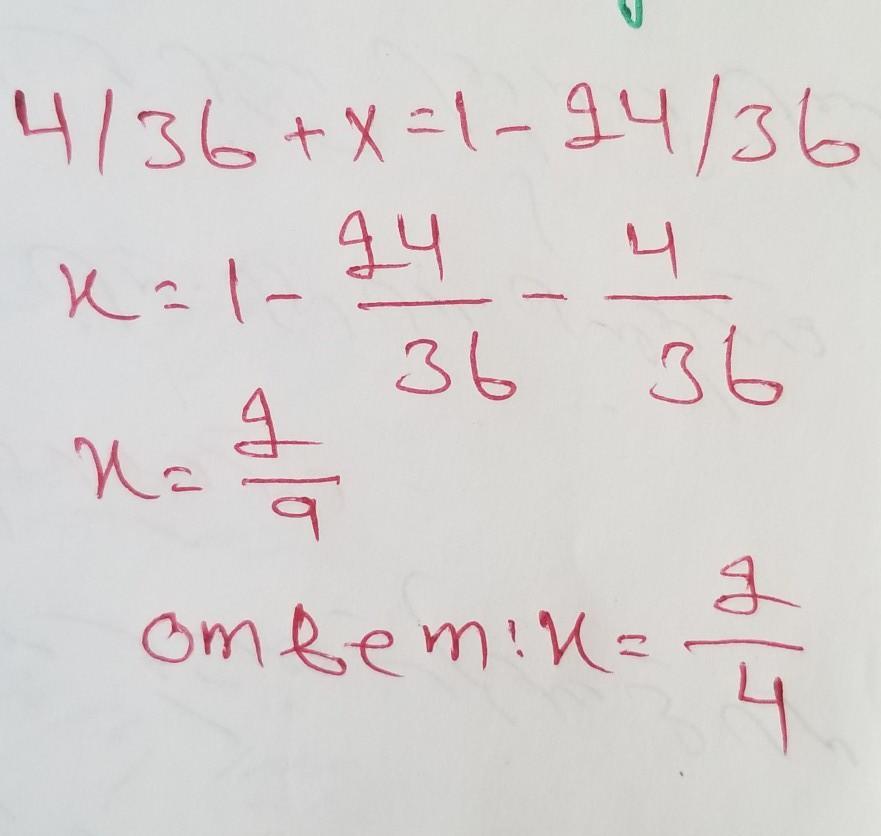 4/36 + x = 1 - 24/36
x = 1 - 24/36 - 4/36
x = 2/9
ответ: x = 2/4